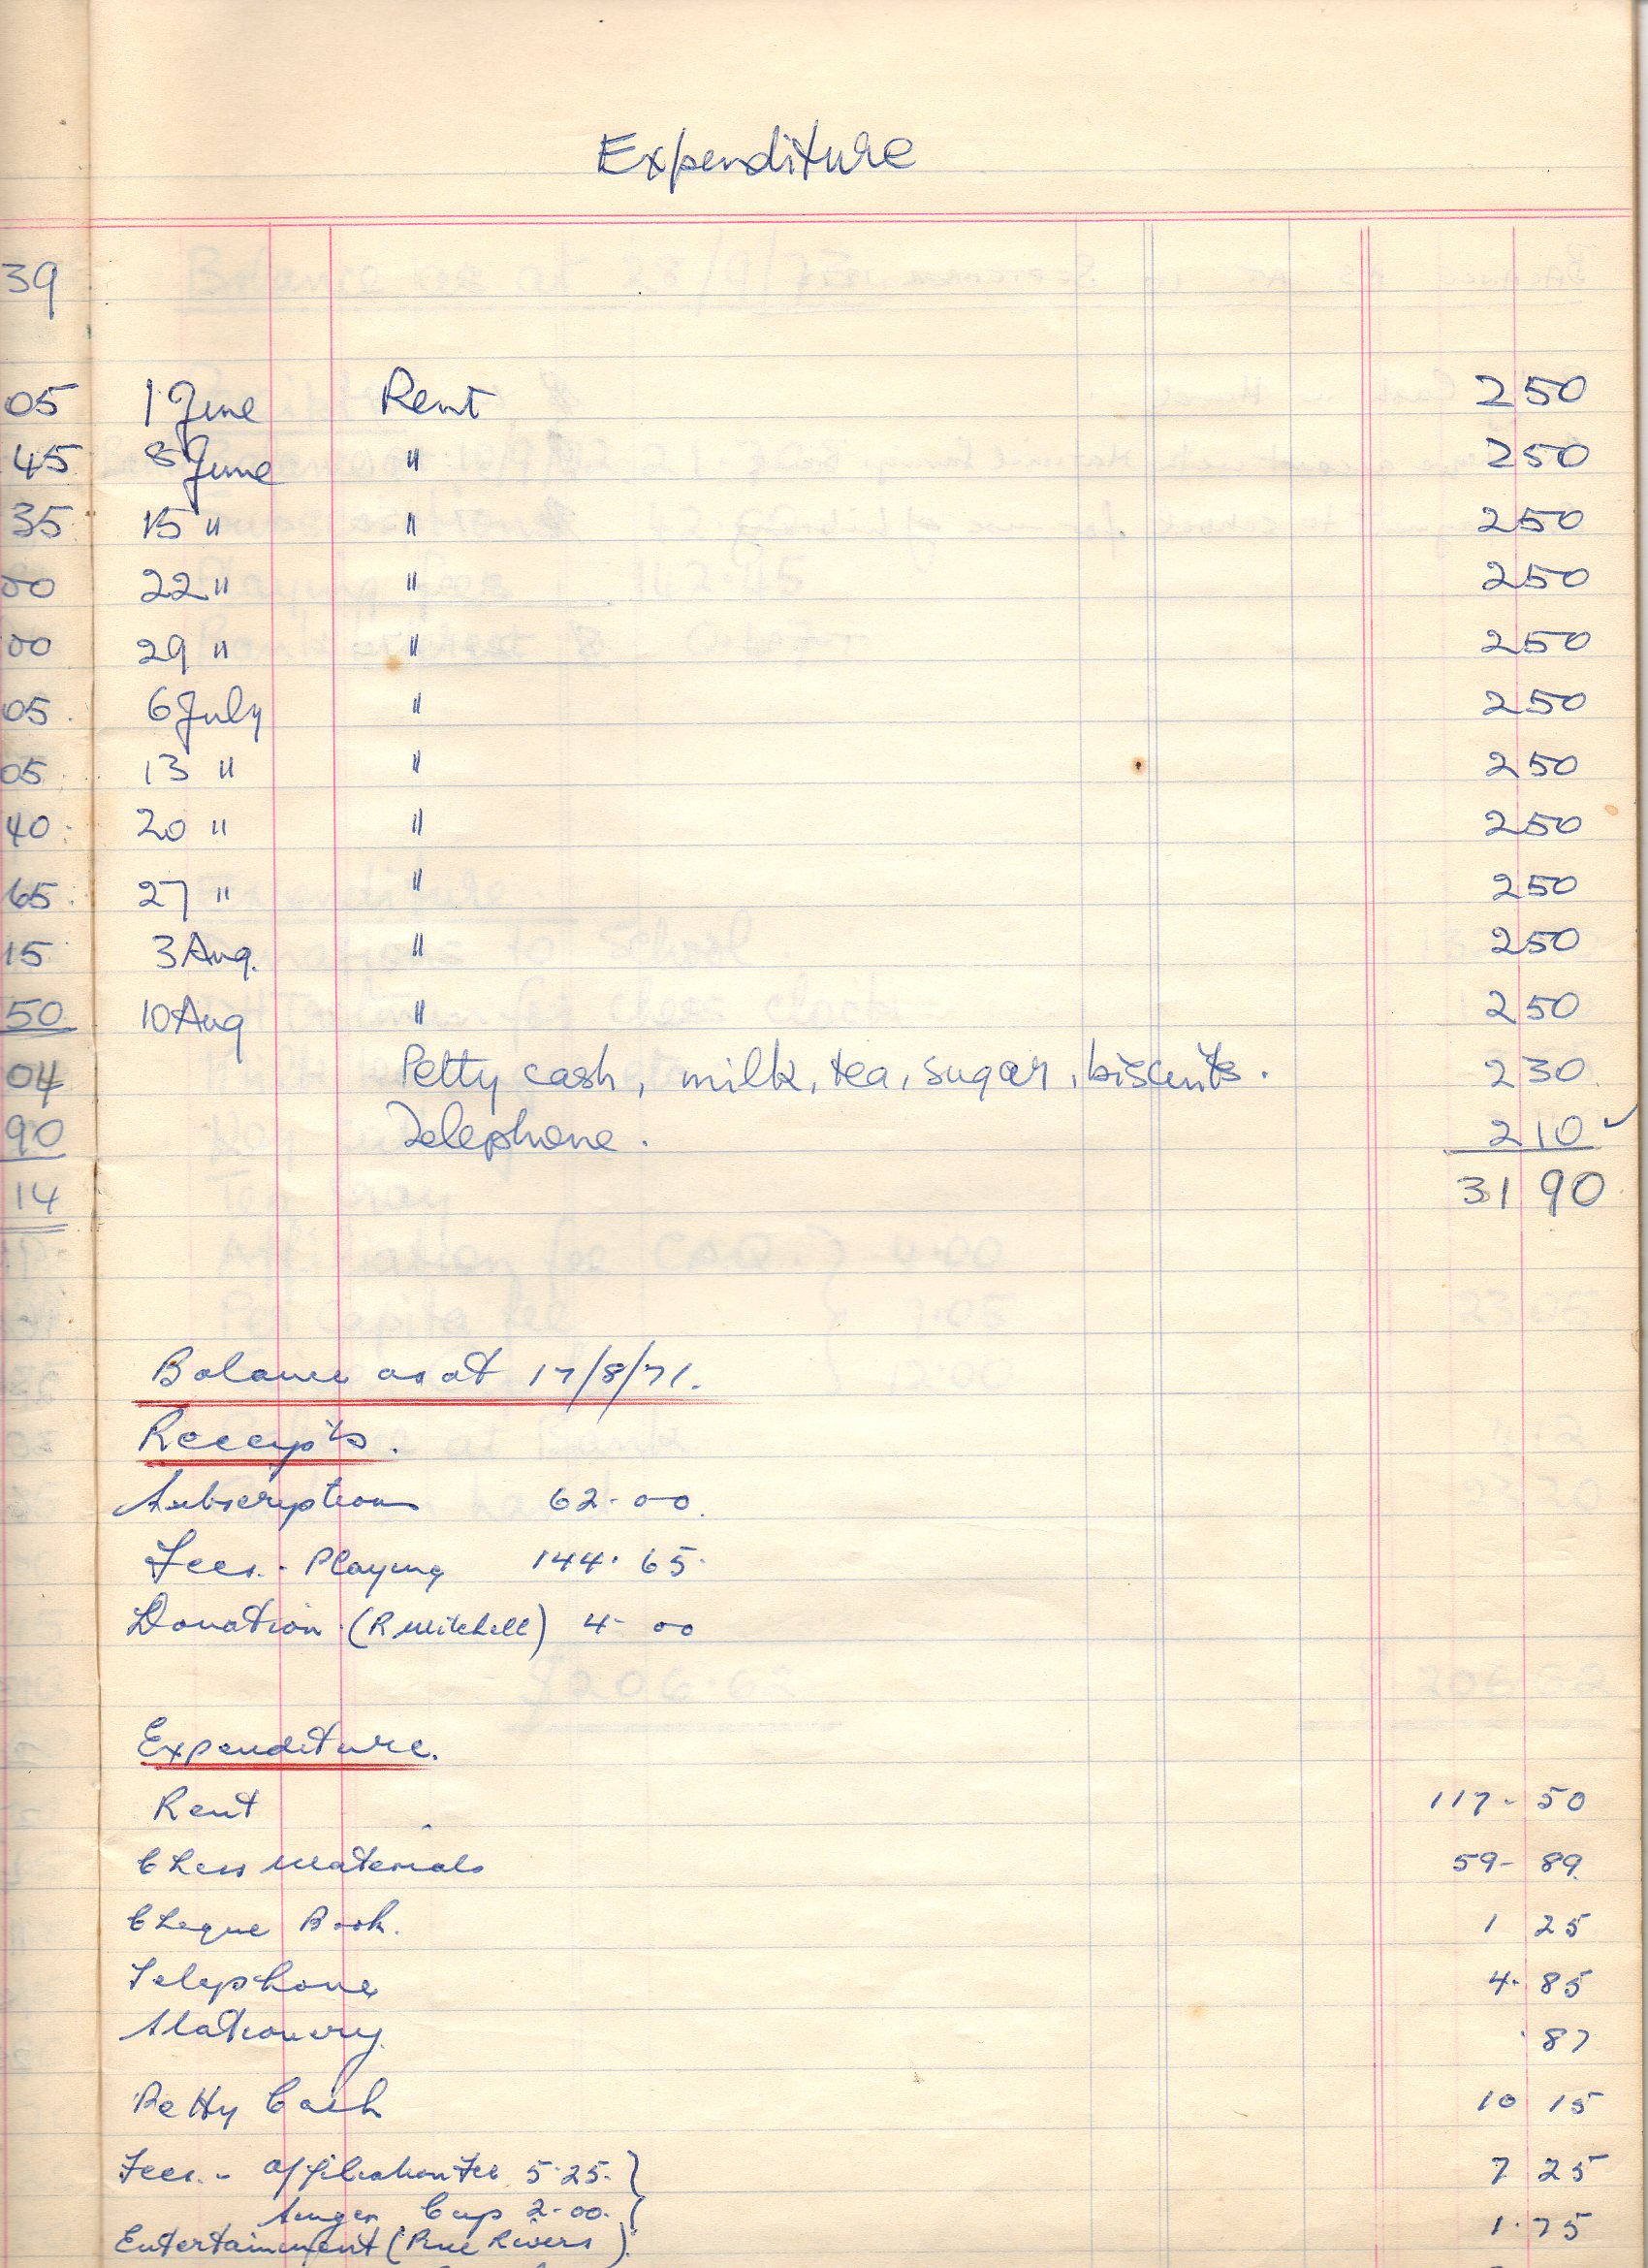 Expenditure
39
05 1 June Rent 2 50
45 8 June " 2 50
35 15 " " 2 50
00 22 " " 2 50
00 29 " " 2 50
05. 6 July " 2 50
05. 13 " " 2 50
40. 20 " " 2 50
65. 27 " " 2 50
15 3 Aug. " 2 50
50 10 Aug " 2 50
04 Petty cash, milk, tea, sugar, biscuits. 2 30
90 Telephone. 2 10 ✓
14 31 90
Balance as at 17/8/71.
Receipts.
Subscriptions 62-00.
Fees.- Playing 144.65.
Donation.(R Mitchell) 4-00
Expenditure.
Rent 117-50
Chess Materials 59-89.
Cheque Book. 1 25
Telephone 4.85
Stationery. .87
Petty Cash 10 15
Fees.- Affiliation Fee 5.25.} 7 25
Cup 2-00.
Entertainment ( ) 1.75